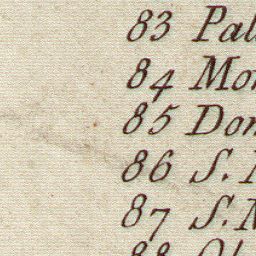 83 Pal
84 Mon
85 Don
86 S.
87 S. M
88